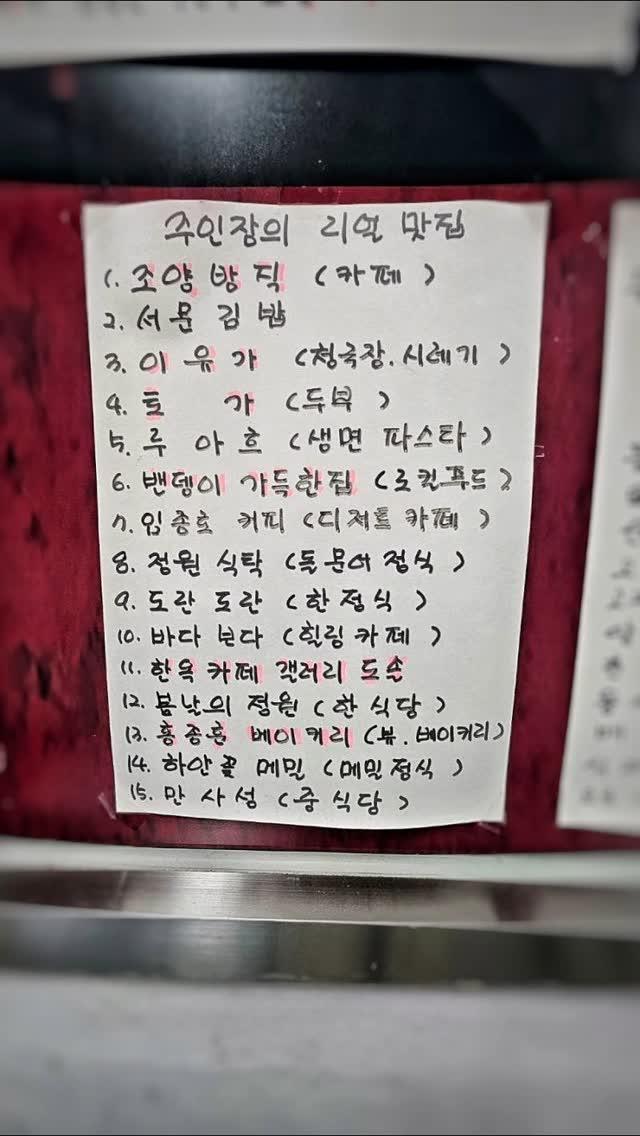 주인장의 리얼 맛집
1. 조양방직 (카페)
2. 서문김밥
3. 이유가 (청국장.시레기)
4. 토가 (두부)
5. 루아흐 (생면 파스타)
6. 밴뎅이 가득한집 (로컬푸드)
7. 임종호 커피 (디저트 카페)
8. 정원 식탁 (돌문어 정식)
9. 도란 도란 (한정식)
10. 바다 보다 (힐링 카페)
11. 한옥 카페 갤러리 도손
12. 봄날의 정원 (한식당)
13. 홍종흔 베이커리 (뷰.베이커리)
14. 하얀꽃 메밀 (메밀정식)
15. 만사성 (중식당)